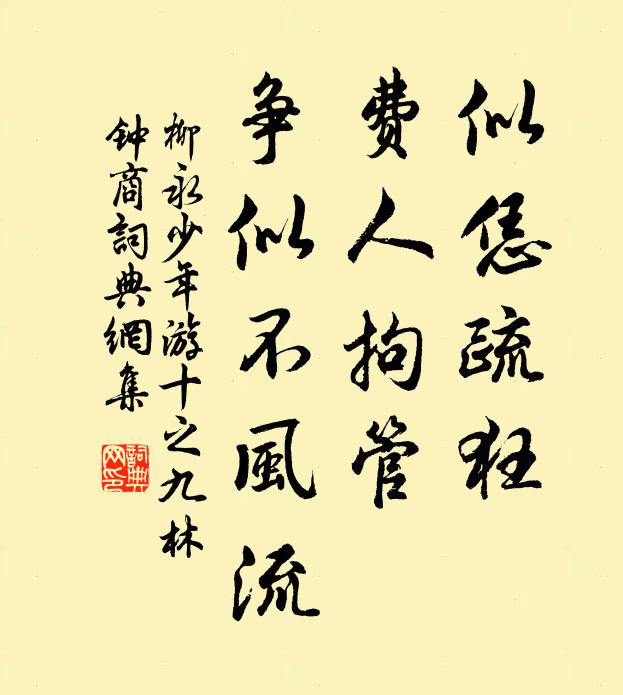 似恁疏狂
费人拘管
争似不風流
柳永少年游十之九林
钟商詞典網集
詞典
网印